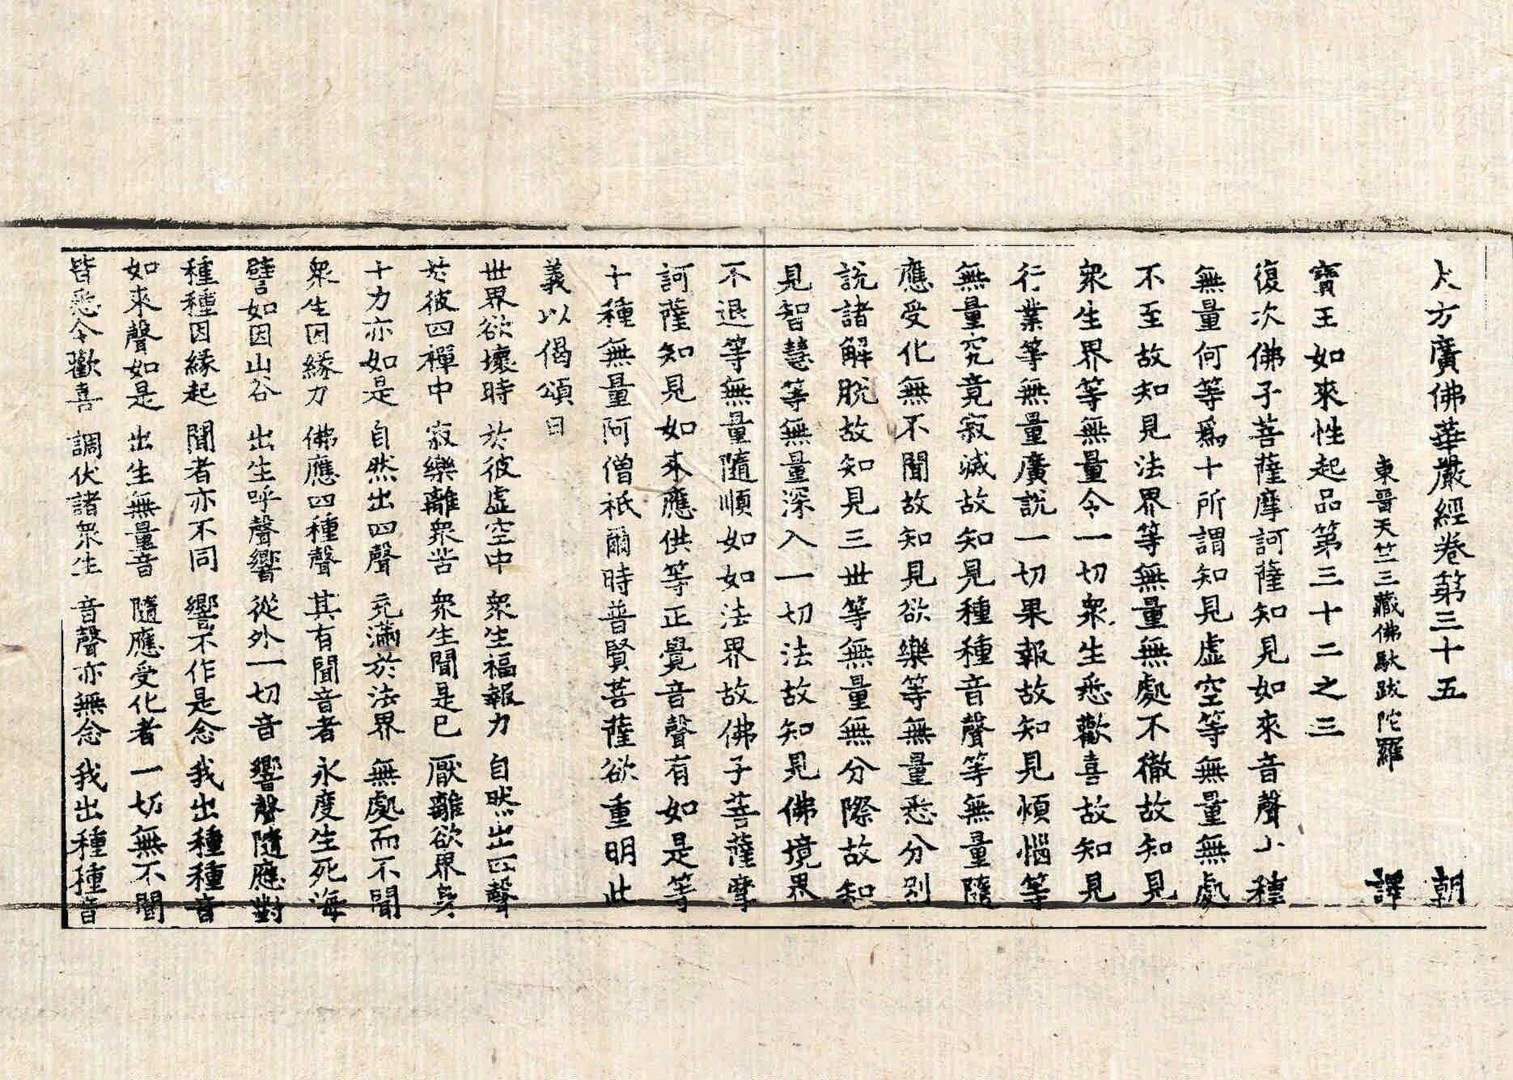 大方廣佛華嚴經卷第三十五 朝
東晉天竺三藏佛馱跋陀羅 譯
寶王如來性起品第三十二之三
復次佛子菩薩摩訶薩知見如來音聲十種
無量何等爲十所謂知見虛空等無量無處
不至故知見法界等無量無處不徹故知見
眾生界等無量令一切眾生悉歡喜故知見
行業等無量廣說一切果報故知見煩惱等
無量究竟寂滅故知見種種音聲等無量隨
應受化無不聞故知見欲樂等無量悉分別
說諸解脫故知見三世等無量無分際故知
見智慧等無量深入一切法故知見佛境界
不退等無量隨順如如法界故佛子菩薩摩
訶薩知見如來應供等正覺音聲有如是等
十種無量阿僧祇爾時普賢菩薩欲重明此
義以偈頌曰
世界欲壞時 於彼虛空中 眾生福報力 自然出四聲
於彼四禪中 寂樂離眾苦 眾生聞是已 厭離欲界身
十力亦如是 自然出四聲 充滿於法界 無處而不聞
眾生因緣力 佛應四種聲 其有聞音者 永度生死海
譬如因山谷 出生呼聲響 從外一切音 響聲隨應對
種種因緣起 聞者亦不同 響不作是念 我出種種音
如來聲如是 出生無量音 隨應受化者 一切無不聞
皆悉令歡喜 調伏諸眾生 音聲亦無念 我出種種音